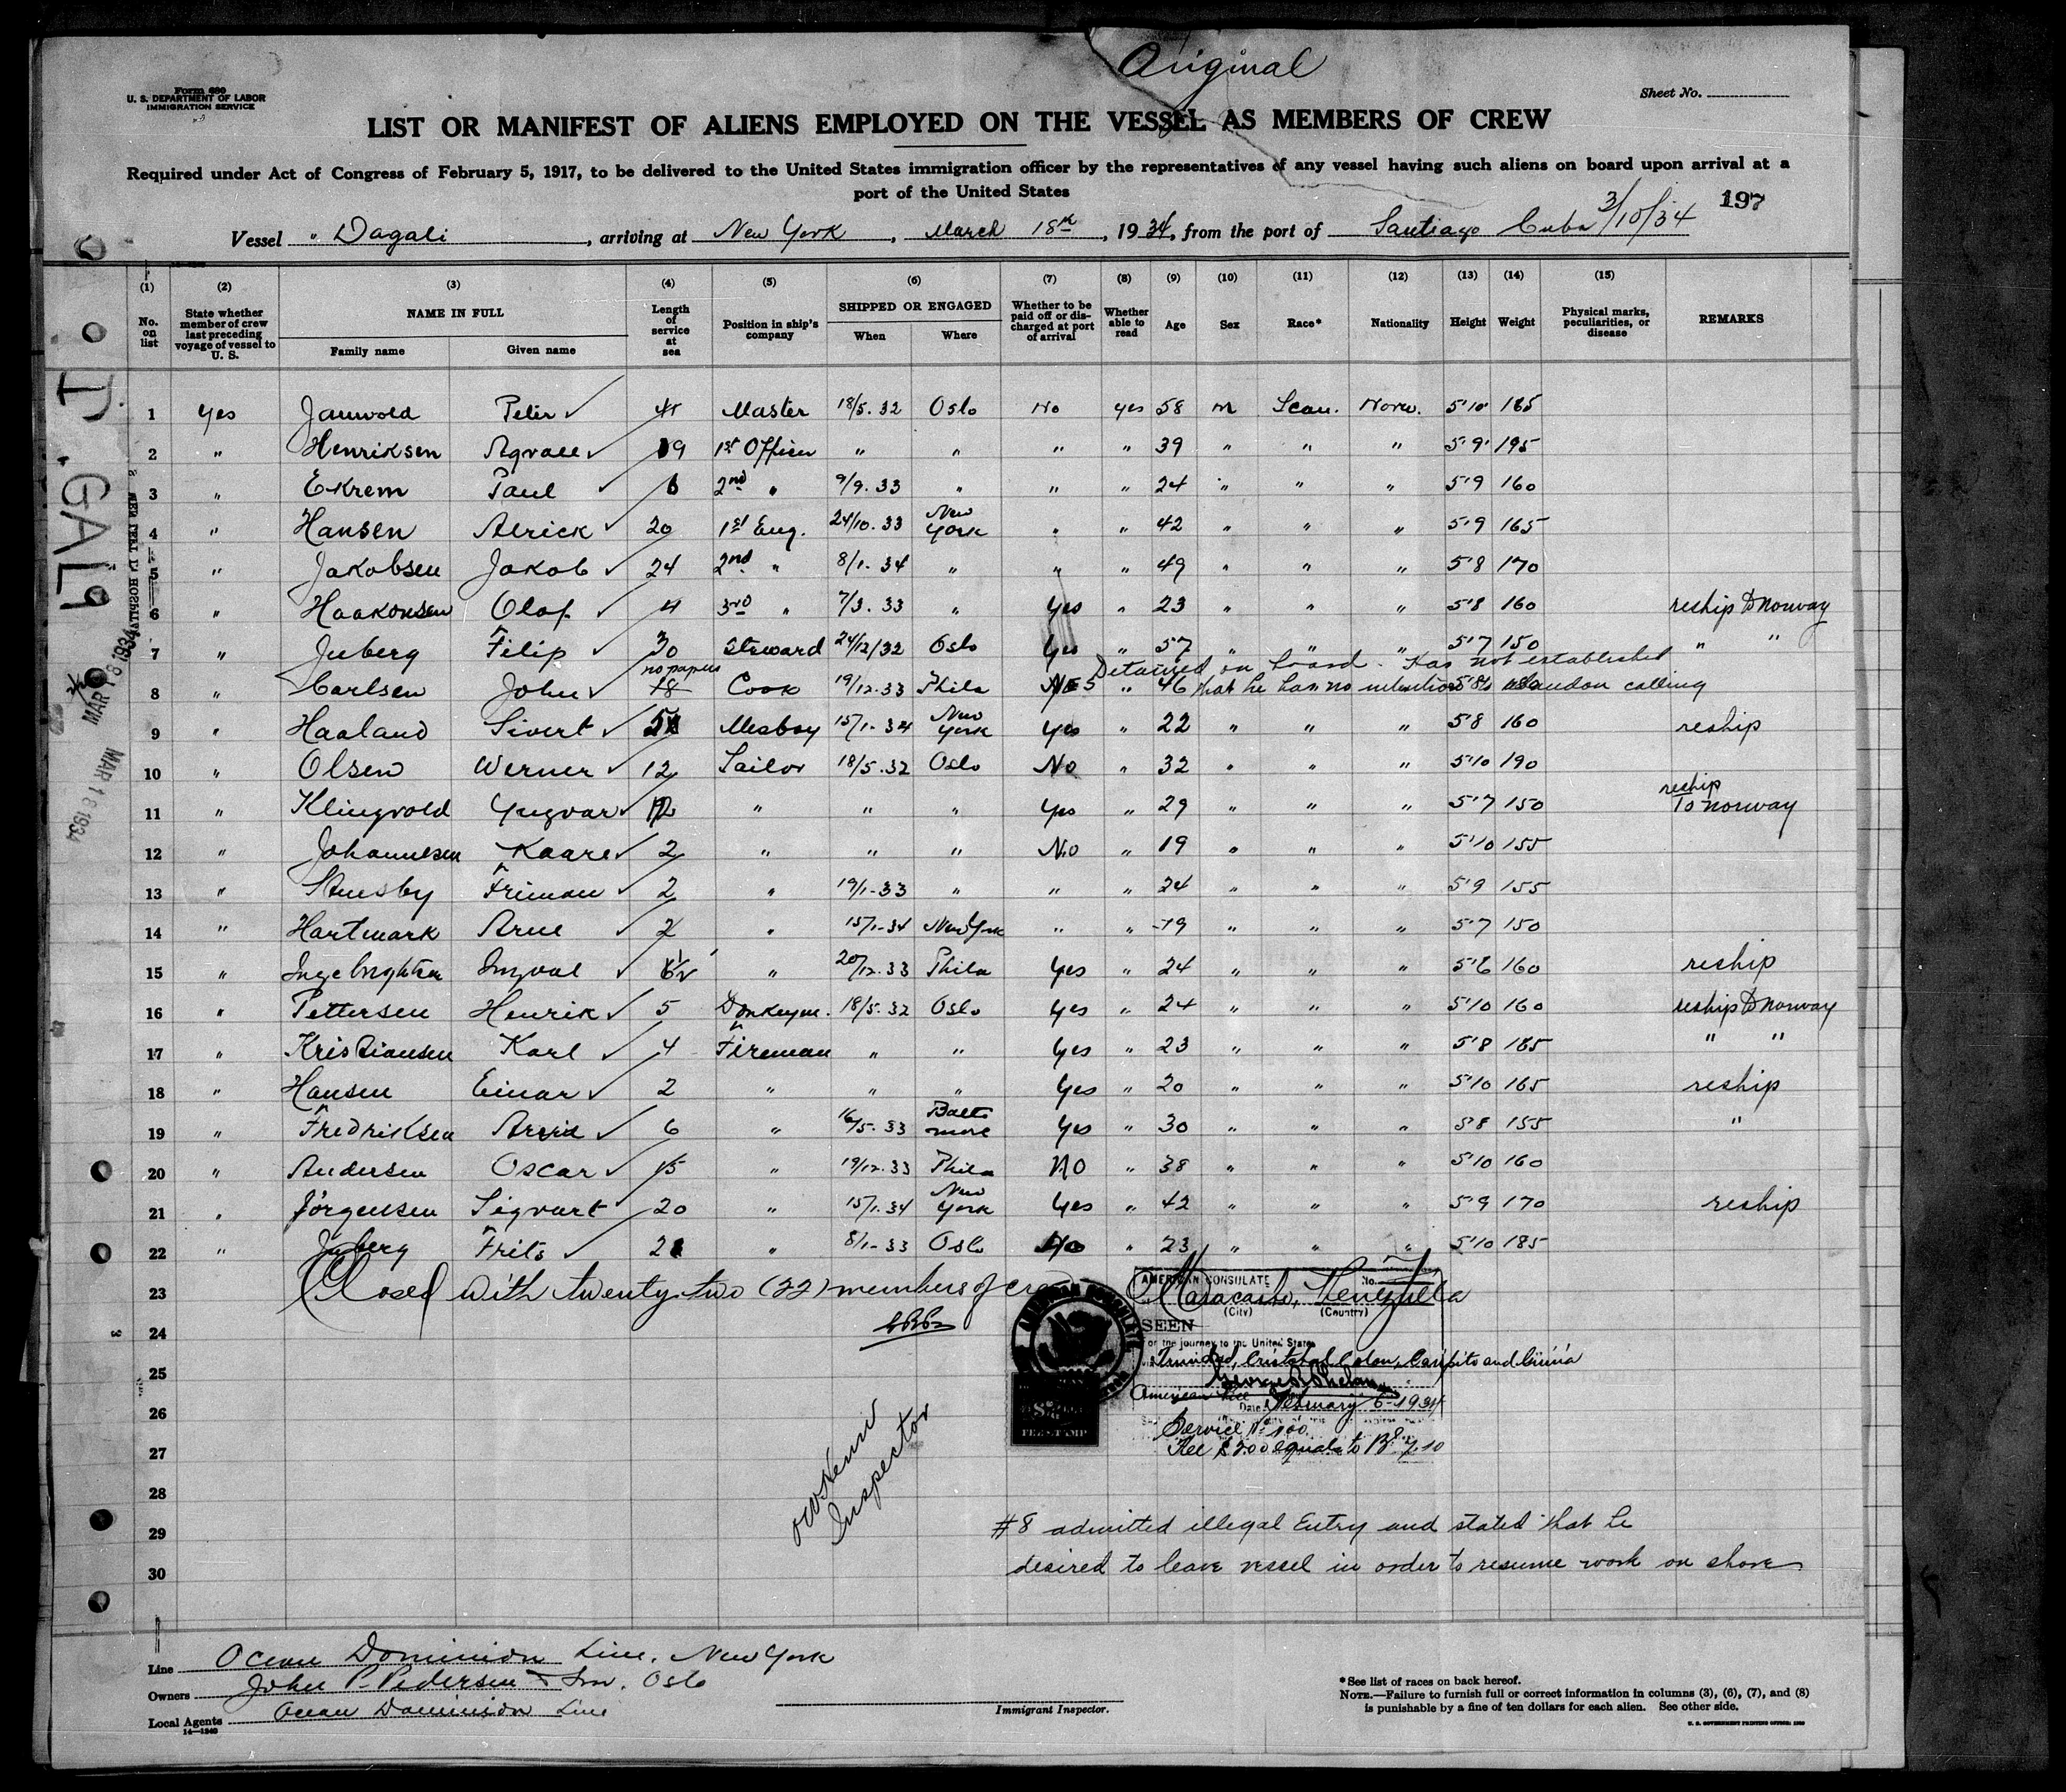 Original
Form 680
U. S. DEPARTMENT OF LABOR
IMMIGRATION SERVICE
Sheet No.
LIST OR MANIFEST OF ALIENS EMPLOYED ON THE VESSEL AS MEMBERS OF CREW
Required under Act of Congress of February 5, 1917, to be delivered to the United States immigration officer by the representatives of any vessel having such aliens on board upon arrival at a
port of the United States
197
Vessel " Dagali , arriving at New York , March 18th , 1934, from the port of Santiago Cuba 3/10/34
(1) (2) (3) (4) (5) (6) (7) (8) (9) (10) (11) (12) (13) (14) (15)
No. on list
State whether member of crew last preceding voyage of vessel to U. S.
NAME IN FULL
Family name Given name
Length of service at sea
Position in ship's company
SHIPPED OR ENGAGED
When Where
Whether to be paid off or discharged at port of arrival
Whether able to read
Age Sex Race* Nationality Height Weight
Physical marks, peculiarities, or disease
REMARKS
1 Yes Janwold Peter 41 Master 18/5. 32 Oslo No yes 58 m Scan. Norw. 5'10 185
2 " Henriksen 19 1st Officer " " " " 39 " " " 5'9 195
3 " Ekrem Paul 6 2nd " 9/9. 33 " " " 24 " " " 5'9 160
4 " Hansen Alrick 20 1st Eng. 24/10. 33 New York " " 42 " " " 5'9 165
5 " Jakobsen Jakob 24 2nd " 8/1. 34 " " " 49 " " " 5'8 170
6 " Haakonsen Olaf 4 3rd " 7/3. 33 " Yes " 23 " " " 5'8 160 reship to Norway
7 " Juberg Filip 30 Steward 24/12/32 Oslo Yes " 57 " " " 5'7 150 " "
no papers Detained on board. Has not established
8 " Carlsen John 18 Cook 19/12.33 Phila Yes " 46 that he has no intention to abandon calling
9 " Haaland Sivert Mesboy 15/1-34 New York Yes " 22 " " " 5'8 160 reship
10 " Olsen Werner 12 Sailor 18/5.32 Oslo No " 32 " " " 5'10 190
11 " Klingvold Yngvar 12 " " " Yes " 29 " " " 5'7 150 reship To Norway
12 " Johannesen Kaare 2 " " " No " 19 " " " 5'10 155
13 " 2 " 19/1-33 " " " 24 " " " 5'9 155
14 " Hartmark Arne 2 " 15/1-34 New York " " 19 " " " 5'7 150
15 " " 20/12.33 Phila Yes " 24 " " " 5'6 160 reship
16 " Pettersen Henrik 5 Donkeym. 18/5.32 Oslo Yes " 24 " " " 5'10 160 reship to Norway
17 " Kristiansen Karl 4 Fireman " " Yes " 23 " " " 5'8 185 " "
18 " Hansen Einar 2 " " " Yes " 20 " " " 5'10 165 reship
19 " Fredriksen Arvid 6 " 16/5.33 Baltimore Yes " 30 " " " 5'8 155 "
20 " Andersen Oscar 15 " 19/12.33 Phila No " 38 " " " 5'10 160
21 " Jörgensen Sigvart 20 " 15/1.34 New York Yes " 42 " " " 5'9 170 reship
22 " Juberg Frits 2 " 8/1-33 Oslo No " 23 " " " 5'10 185
23 Closed with twenty-two (22) members of crew
24
25
26
27
28
29
30
AMERICAN CONSULATE No.
Maracaibo, Venezuela
(City) (Country)
SEEN
For the journey to the United States
Trinidad, Cristobal Colon, Caripito and
Date February 6-1934
Service No. 100
Fee $2.00 equals to Bs 7.10
Inspector
#8 admitted illegal Entry and stated that he
desired to leave vessel in order to resume work on shore
Line Ocean Dominion Line. New York
Owners John P. Pedersen & Son. Oslo
Local Agents Ocean Dominion Line
14—1240
Immigrant Inspector.
*See list of races on back hereof.
NOTE.—Failure to furnish full or correct information in columns (3), (6), (7), and (8)
is punishable by a fine of ten dollars for each alien. See other side.
U. S. GOVERNMENT PRINTING OFFICE
MAR 18 1934
MAR 18 1934